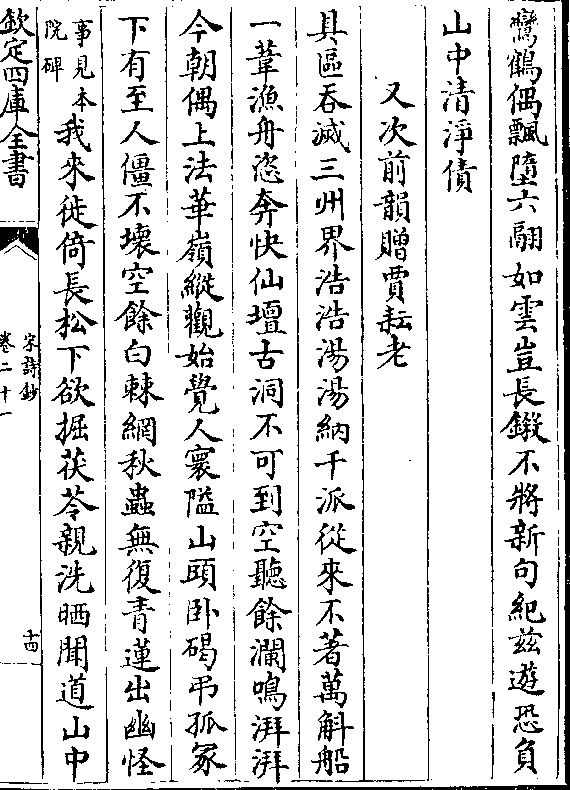 鸞鶴偶飄墮六翮如雲豈長鎩不將新句紀兹遊恐負
山中清淨債
又次前韻贈賈耘老
具區吞滅三州界浩浩湯湯納千派從來不著萬斛船
一葦漁舟恣奔快仙壇古洞不可到空聽餘瀾鳴湃湃
今朝偶上法華嶺縱觀始覺人寰隘山頭卧碣弔孤冢
下有至人僵不壞空餘白棘網秋蟲無復青蓮出幽怪
事見本院碑我來徙倚長松下欲掘茯苓親洗晒聞道山中
欽定四庫全書
宋詩鈔
卷二十一
十四